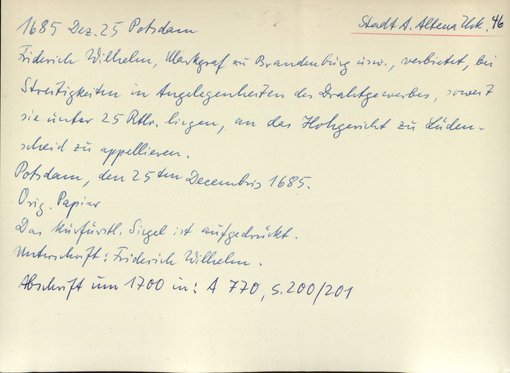 1685 Dez. 25 Potsdam
Stadt A. Altena Urk. 46
Friderich Wilhelm, Markgraf zu Brandenburg usw., verbietet, bei
Streitigkeiten in Angelegenheiten des Drahtgewerbes, soweit
sie unter 25 Rtlr. liegen, an das Hohgericht zu Lüden-
scheid zu appellieren.
Potsdam, den 25ten Decembris 1685.
Orig. Papier
Das kurfürstl. Siegel ist aufgedrückt.
Unterschrift: Friderich Wilhelm.
Abschrift um 1700 in: A 770, S. 200/201